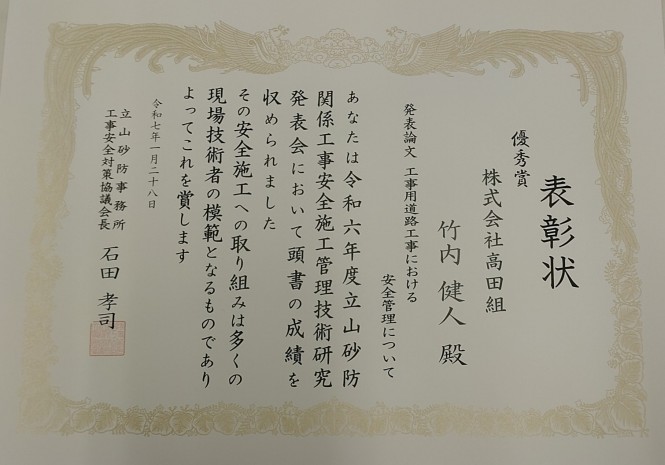 表彰状
優秀賞
株式会社高田組
竹内 健人 殿
発表論文 工事用道路工事における
安全管理について
あなたは令和六年度立山砂防
関係工事安全施工管理技術研究
発表会において頭書の成績を
収められました
その安全施工への取り組みは多くの
現場技術者の模範となるものであり
よってこれを賞します
令和七年一月二十八日
立山砂防事務所
工事安全対策協議会長 石田 孝司